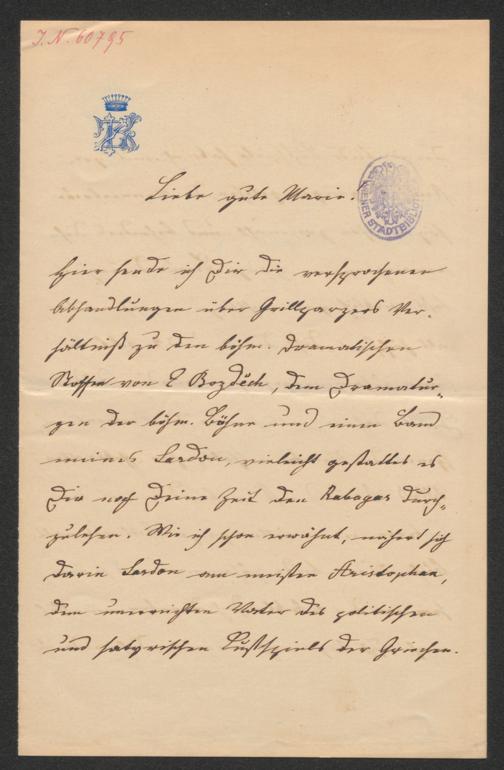 J. N. 60795
Liebe gute Marie!
WIENER STADTBIBLIOTHEK
Hier sende ich Dir die versprochenen
Abhandlungen über Grillparzers Ver-
hältniß zu den böhm. dramatischen
Stoffen von E Bozděch, dem Dramatur-
gen der böhm. Bühne und einen Band
meines Sardou, vieleicht gestattet es
Dir noch Deine Zeit den Rabagas durch-
zulesen. Wie ich schon erwähnt, nähert sich
darin Sardou am meisten Aristophan,
dem unerreichten Vater des politischen
und satyrischen Lustspiels der Griechen.